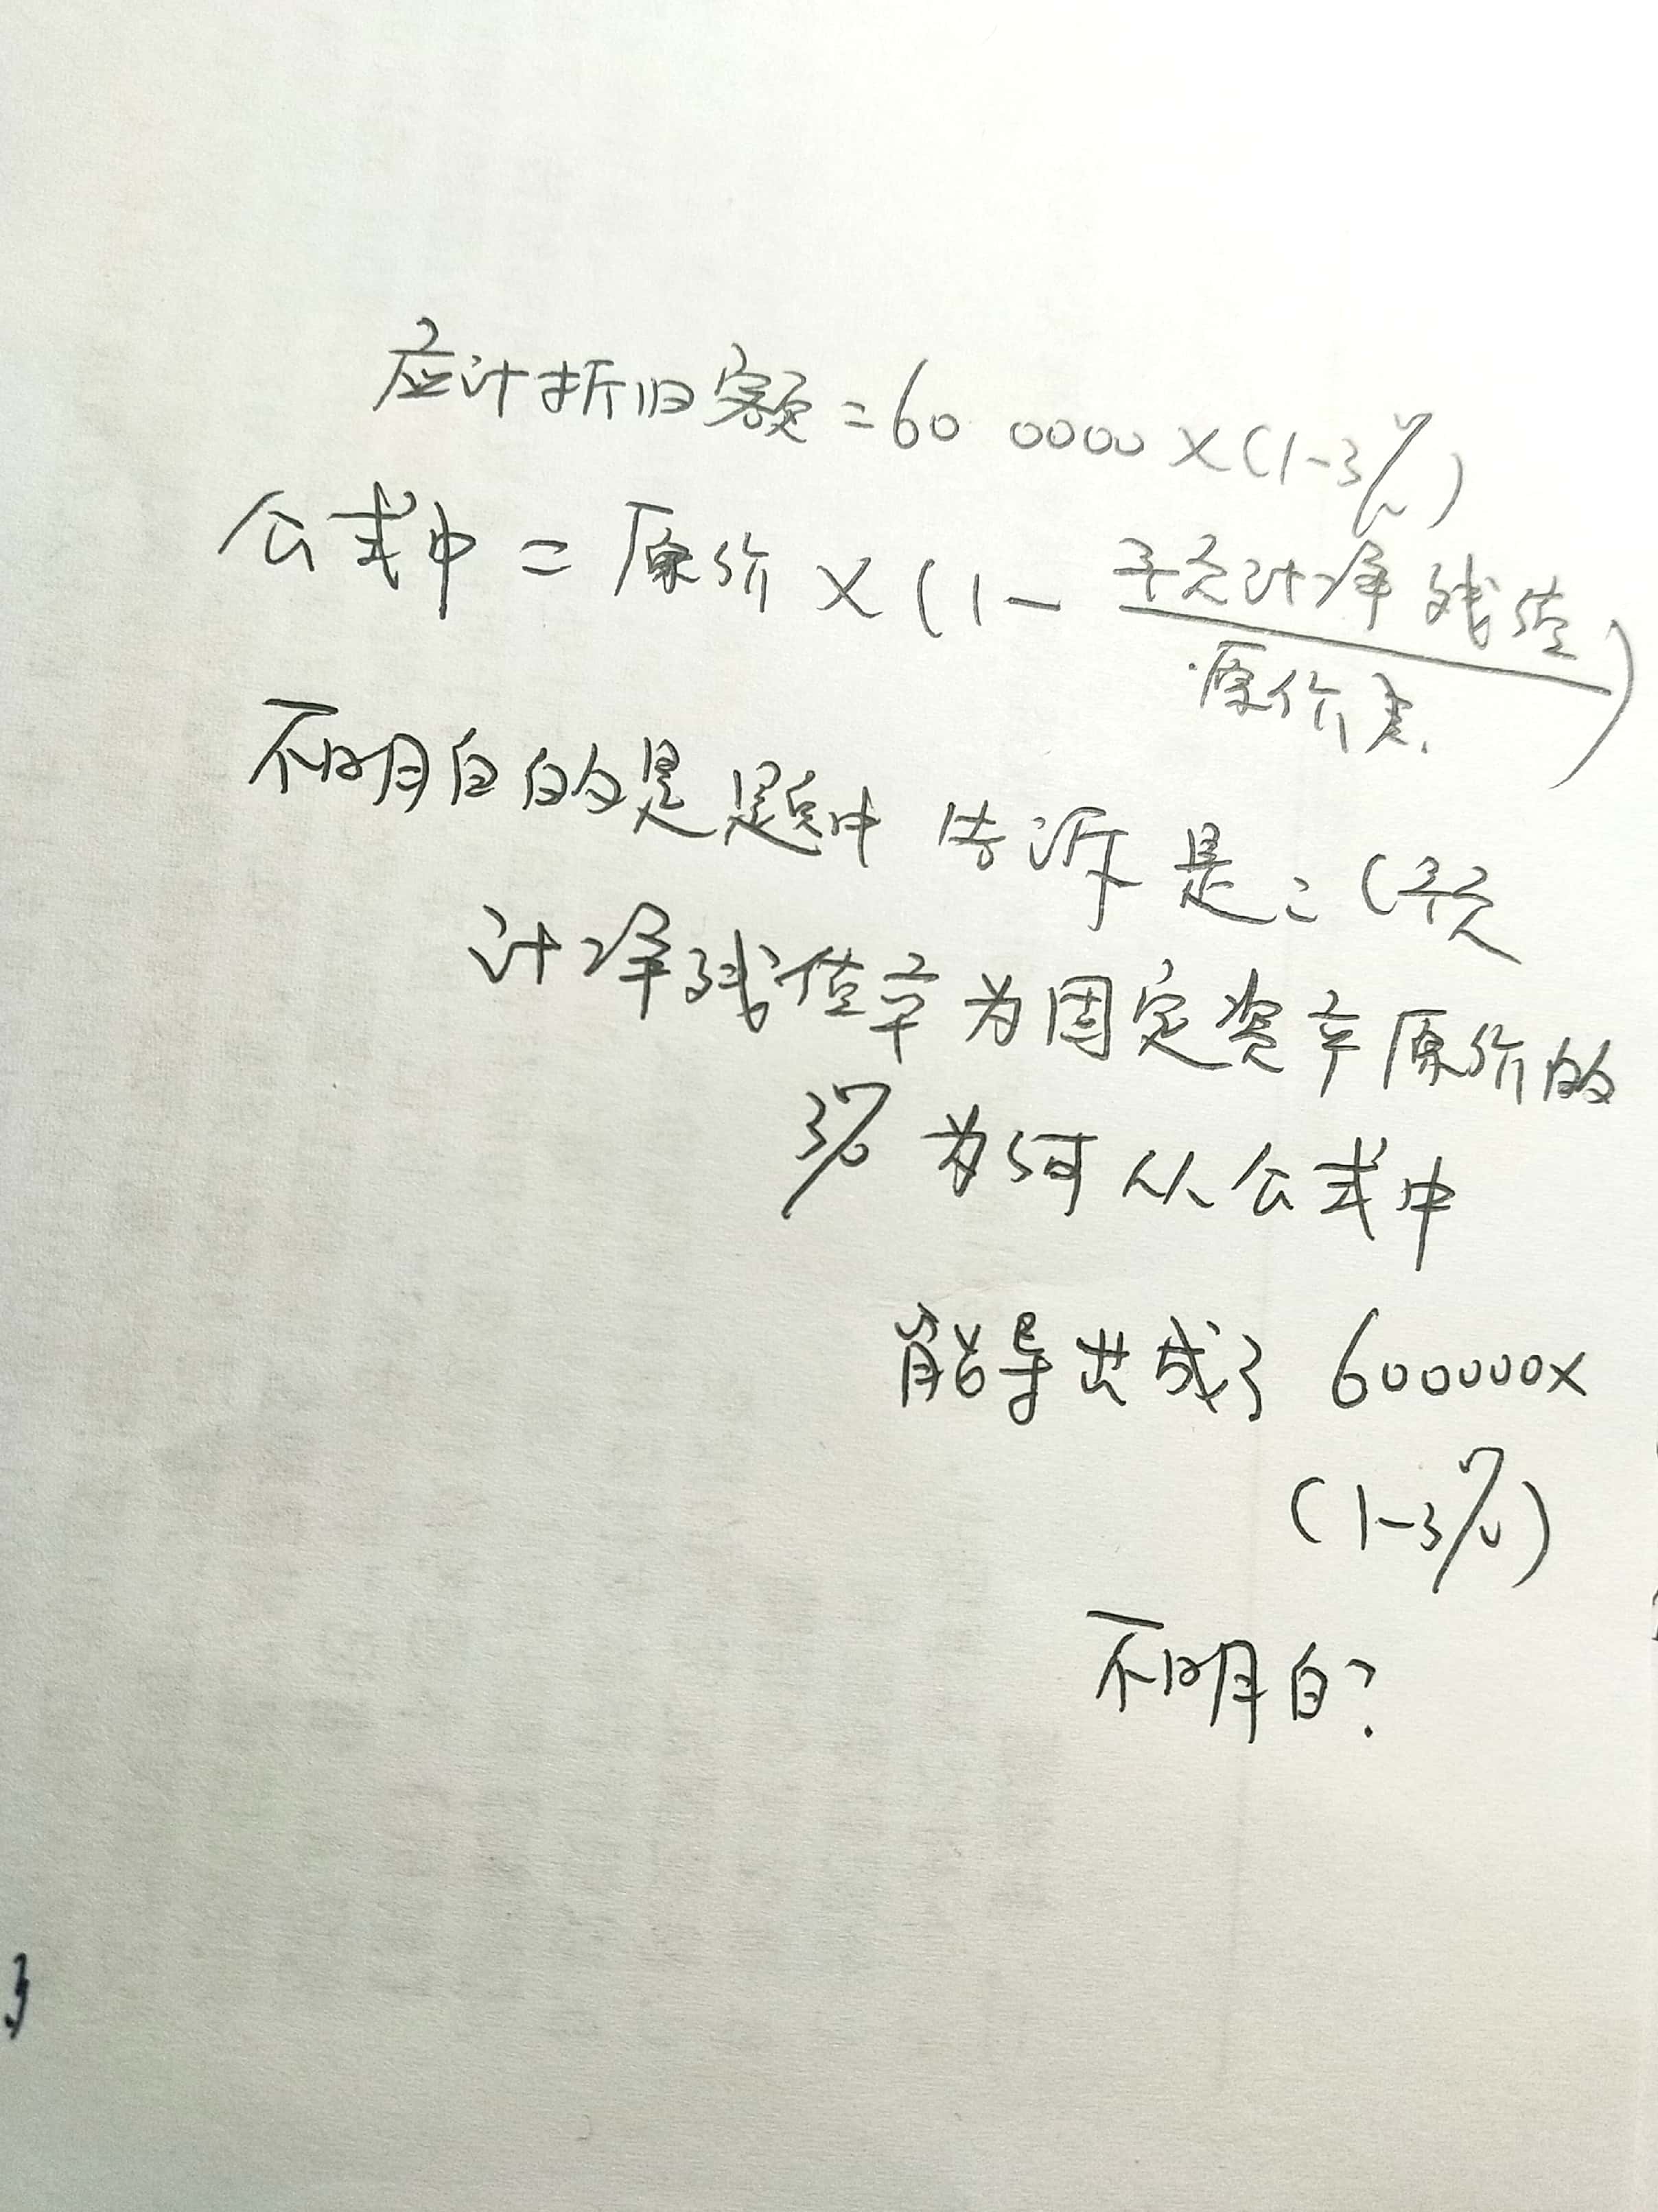 应计折旧额=60 0000×(1-3%)
公式中=原价×(1-预计净残值/原价)
不明白的是题中告诉是:(预
计净残值率为固定资产原价的
3% 为何从公式中
能导出成了 600000×
(1-3%)
不明白?